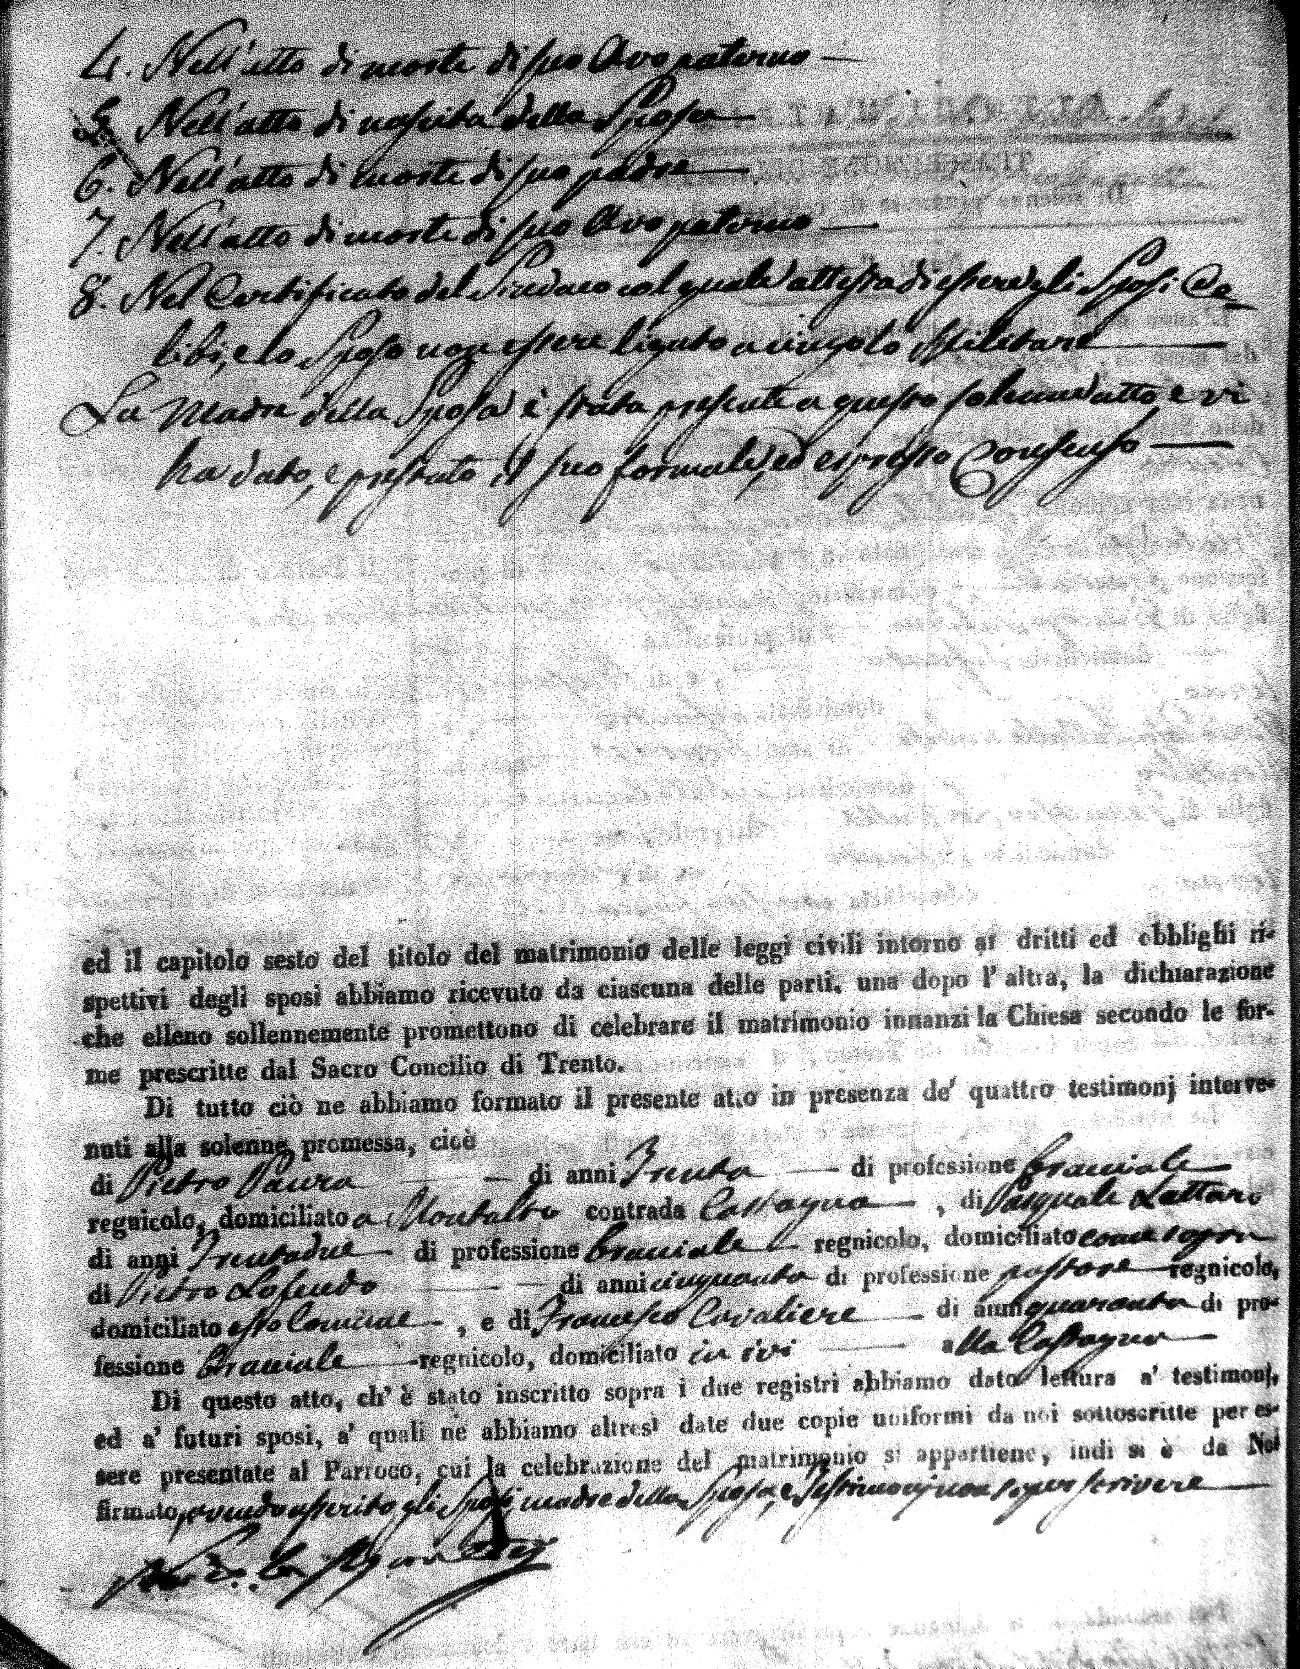 4. Nell'atto di morte di suo Avo paterno —
5. Nell'atto di nascita della Sposa —
6. Nell'atto di morte di suo padre —
7. Nell'atto di morte di suo Avo paterno —
8. Nel Certificato del Sindaco col quale attesta di essere gli Sposi Ce-
libi, e lo Sposo non essere ligato a vincolo Militare —
La Madre della Sposa è stata presente a questo solenne atto e vi
ha dato, e prestato il suo formale, ed espresso Consenso —
ed il capitolo sesto del titolo del matrimonio delle leggi civili intorno ai dritti ed obblighi ri-
spettivi degli sposi abbiamo ricevuto da ciascuna delle parti, una dopo l'altra, la dichiarazione
che elleno sollennemente promettono di celebrare il matrimonio innanzi la Chiesa secondo le for-
me prescritte dal Sacro Concilio di Trento.
Di tutto ciò ne abbiamo formato il presente atto in presenza de' quattro testimonj interve-
nuti alla solenne promessa, cioè
di Pietro Paura — di anni Trenta — di professione bracciale —
regnicolo, domiciliato a Montalto contrada Castagna — , di Pasquale Lattaro
di anni Trentadue — di professione bracciale — regnicolo, domiciliato come sopra
di Pietro — di anni cinquanta di professione pastore — regnicolo,
domiciliato esso Comune — , e di Francesco Cavaliere — di anni quaranta di pro-
fessione bracciale — regnicolo, domiciliato in ivi — alla Castagna —
Di questo atto, ch' è stato inscritto sopra i due registri abbiamo dato lettura a' testimonj,
ed a' futuri sposi, a' quali ne abbiamo altresì date due copie uniformi da noi sottoscritte per es-
sere presentate al Parroco, cui la celebrazione del matrimonio si appartiene, indi si è da Noi
firmato, avendo asserito gli Sposi, madre della Sposa, e Testimonj non saper scrivere —